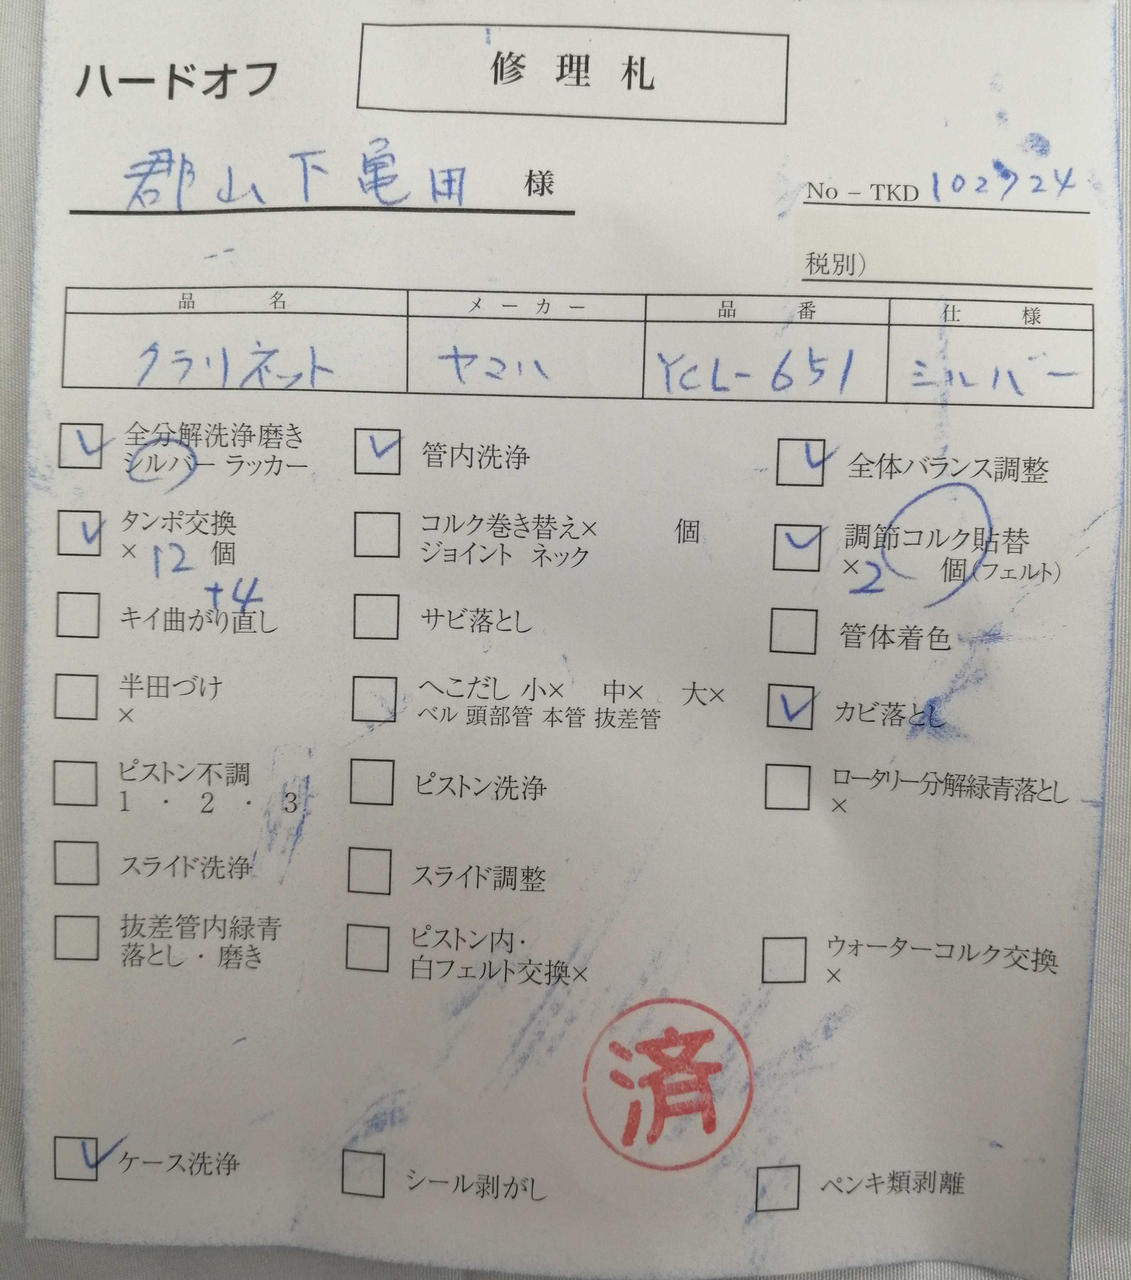 ハードオフ
修理札
郡山下亀田 様
No－TKD 102724
税別）
品名 メーカー 品番 仕様
クラリネット ヤマハ YCL-651 シルバー
全分解洗浄磨き
シルバー ラッカー
管内洗浄
全体バランス調整
タンポ交換
× 12 個
+4
コルク巻き替え× 個
ジョイント ネック
調節コルク貼替
×2 個(フェルト)
キイ曲がり直し
サビ落とし
管体着色
半田づけ
×
へこだし 小× 中× 大×
ベル 頭部管 本管 抜差管
カビ落とし
ピストン不調
1 ・ 2 ・ 3
ピストン洗浄
ロータリー分解緑青落とし
×
スライド洗浄
スライド調整
抜差管内緑青
落とし・磨き
ピストン内・
白フェルト交換×
ウォーターコルク交換
×
済
ケース洗浄
シール剥がし
ペンキ類剥離